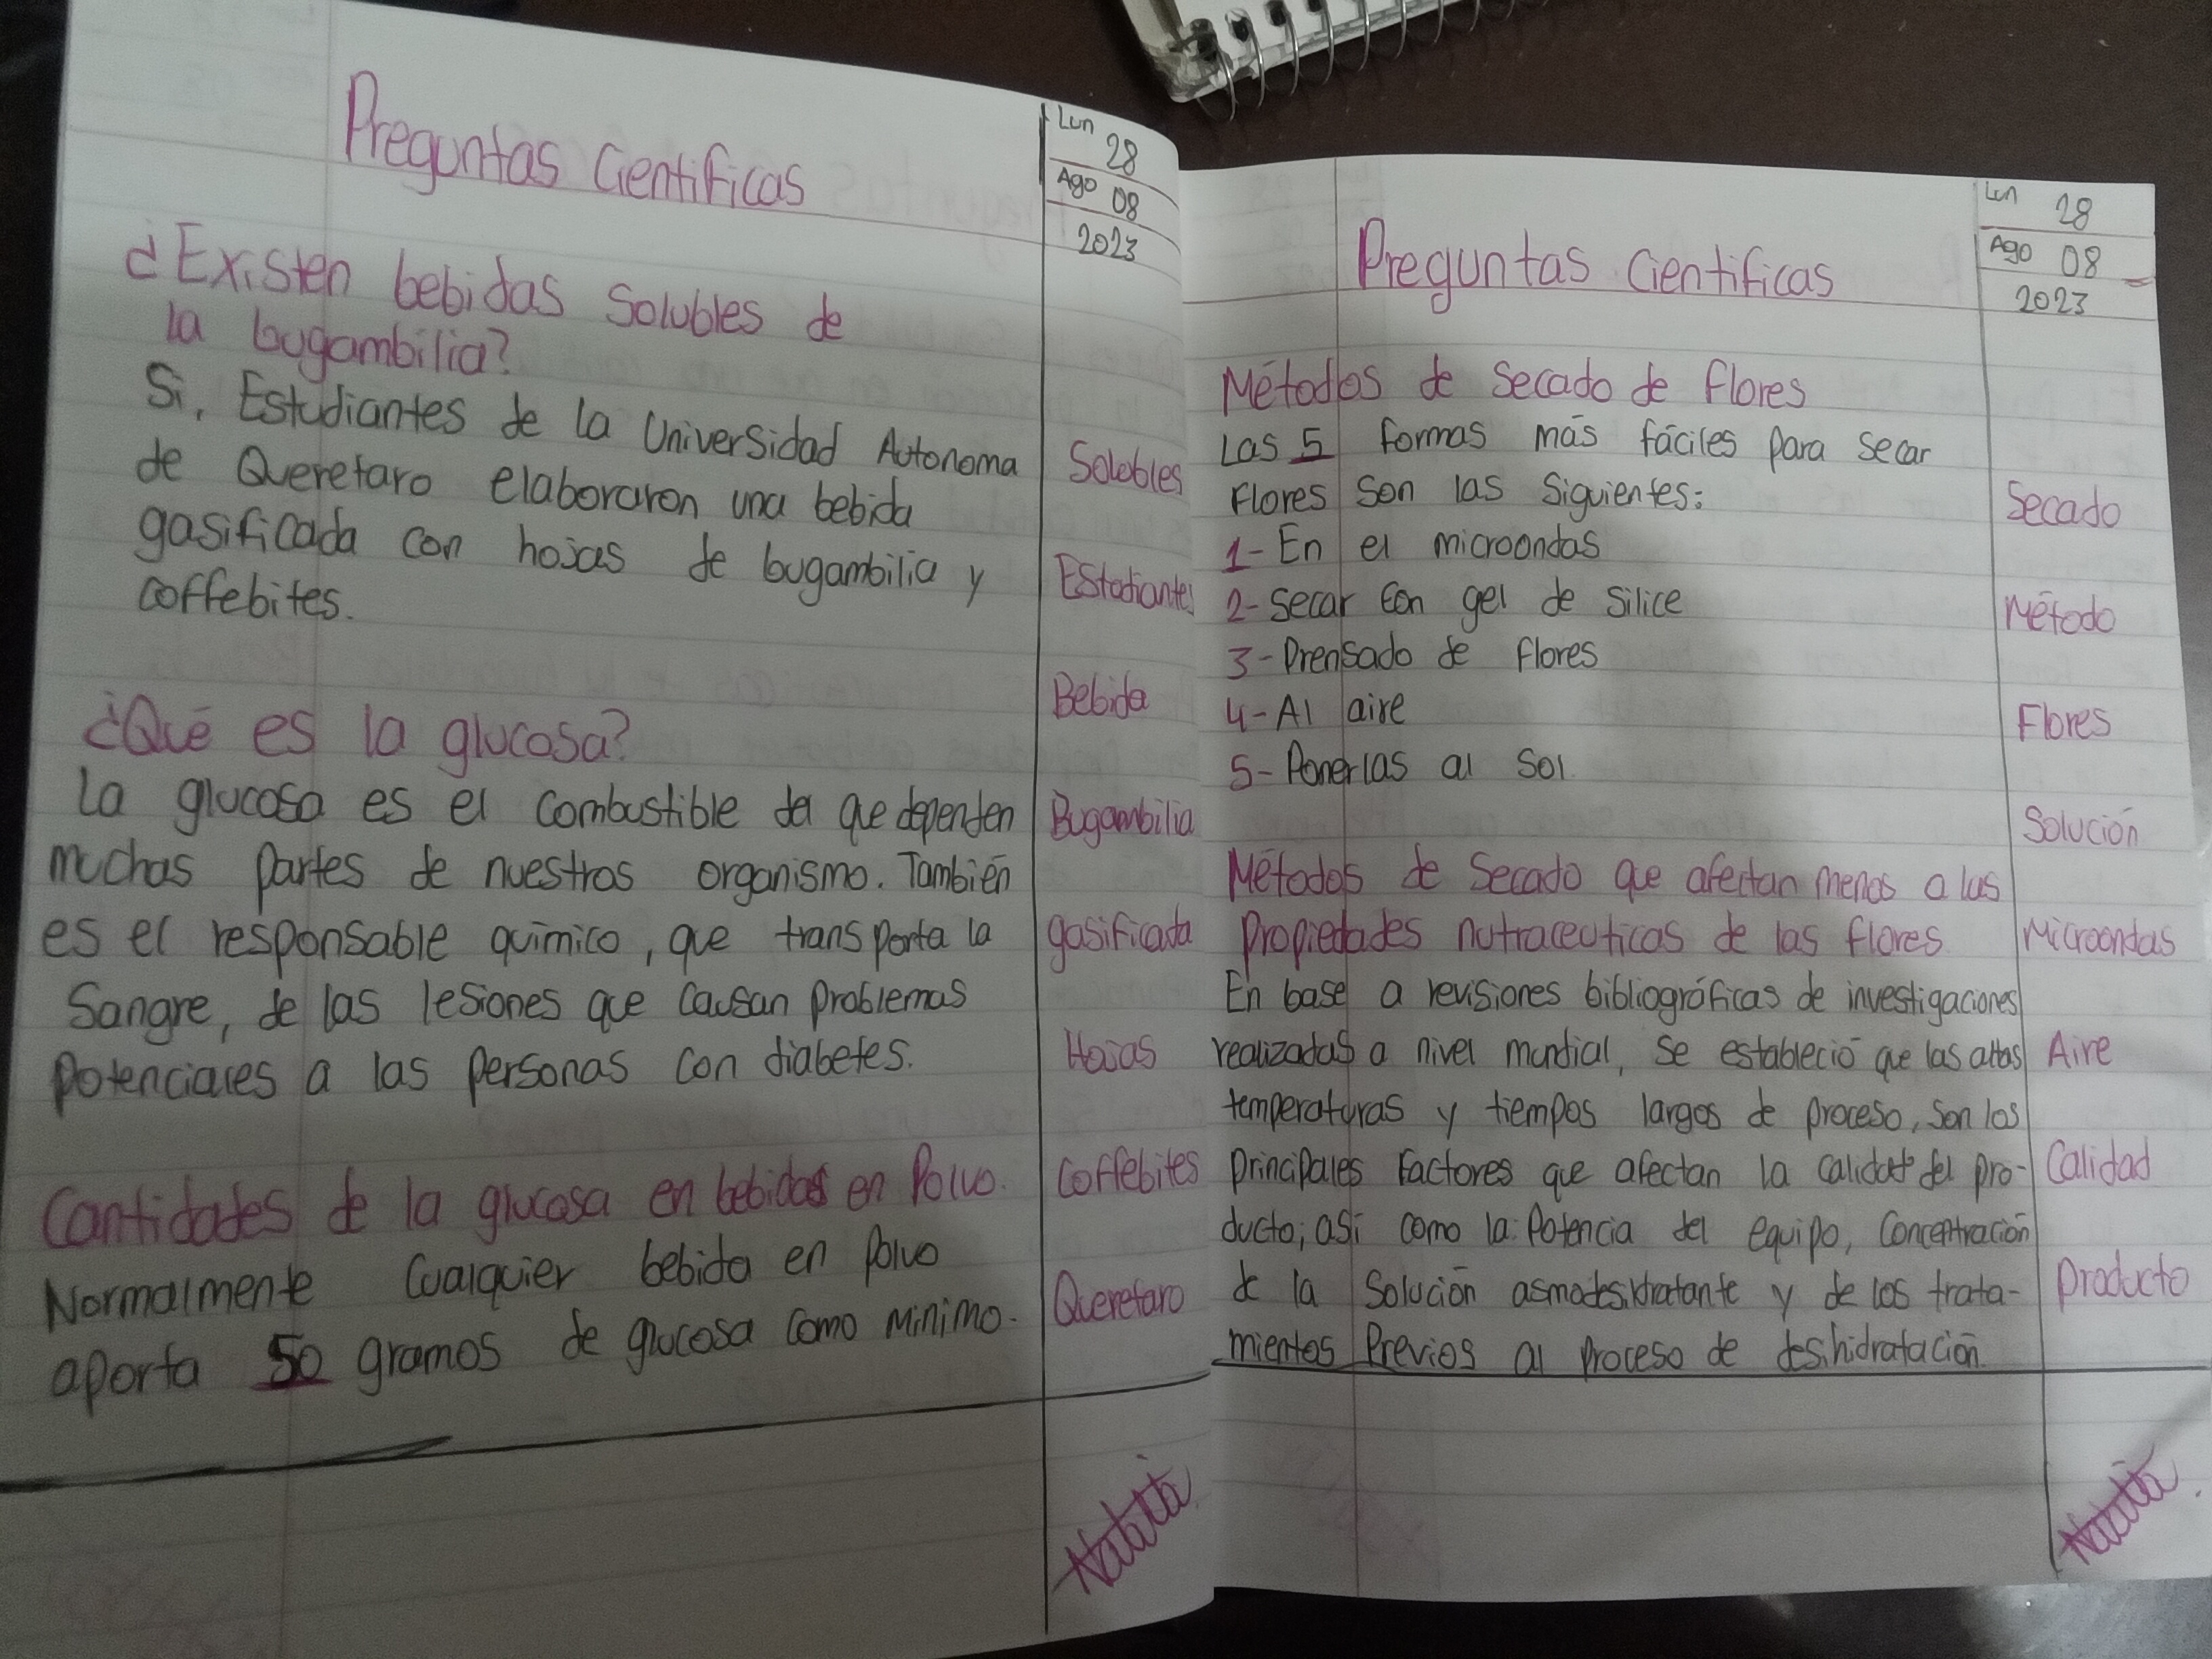 Preguntas Cientificas
Lun 28
Ago 08
2023
¿Existen bebidas Solubles de
la bugambilia?
Si, Estudiantes de la Universidad Autonoma
de Queretaro elaboraron una bebida
gasificada con hojas de bugambilia y
coffebites.
¿Qué es la glucosa?
La glucosa es el combustible del que dependen
muchas partes de nuestros organismo. También
es el responsable químico, que transporta la
Sangre, de las lesiones que causan problemas
potenciales a las personas con diabetes.
Cantidades de la glucosa en bebidas en Polvo.
Normalmente cualquier bebida en polvo
aporta 50 gramos de glucosa como minimo.
Solubles
Estudiantes
Bebida
Bugambilia
gasificada
Hojas
Coffebites
Queretaro
Natalia
Preguntas Cientificas
Lun 28
Ago 08
2023
Métodos de Secado de Flores
Las 5 formas más fáciles para secar
Flores son las siguientes:
1- En el microondas
2- Secar con gel de silice
3- Prensado de flores
4- Al aire
5- Ponerlas al sol
Métodos de Secado que afectan menos a las
propiedades nutraceuticas de las flores
En base a revisiones bibliográficas de investigaciones
realizadas a nivel mundial, se estableció que las altas
temperaturas y tiempos largos de proceso, son los
principales factores que afectan la calidad del pro-
ducto; así como la potencia del equipo, concentración
de la solución asmodesidratante y de los trata-
mientos previos al proceso de deshidratación.
Secado
Método
Flores
Solución
Microondas
Aire
Calidad
Producto
Natalia